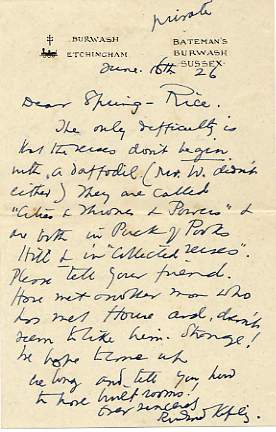 private
BURWASH
ETCHINGHAM
BATEMAN'S
BURWASH
SUSSEX
June. 6th 26
Dear Spring-Rice.
The only difficulty is
that the verses don't begin
with, a daffodil (Mr. W. didn't
either) They are called
"Cities & Thrones & Powers" &
are both in Puck of Pooks
Hill & in "Collected verses".
Please tell your friend.
Have met another man who
has met House and, doesn't
seem to like him. Strange!
We hope to come up
ere long and tell you how
to have built rooms.
Ever sincerely
Rudyard Kipling.